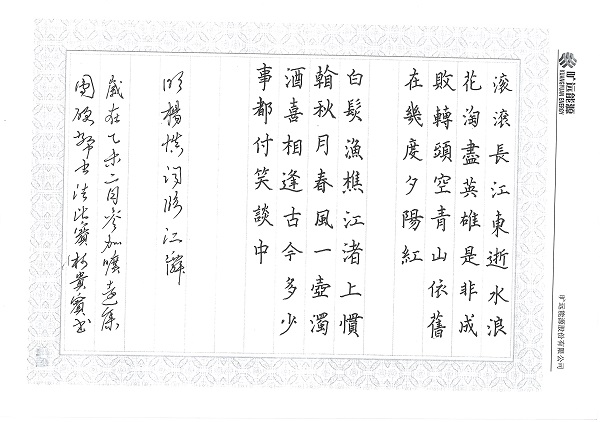 旷远能源
KUANGYUAN ENERGY
旷远能源股份有限公司
滚滚長江東逝水浪
花淘盡英雄是非成
敗轉頭空青山依舊
在幾度夕陽紅
白髮漁樵江渚上慣
翰秋月春風一壺濁
酒喜相逢古今多少
事都付笑談中
明楊慎詞臨江
歲在乙未二月參加曠遠集
團硬筆書法比賽柯貴賓書